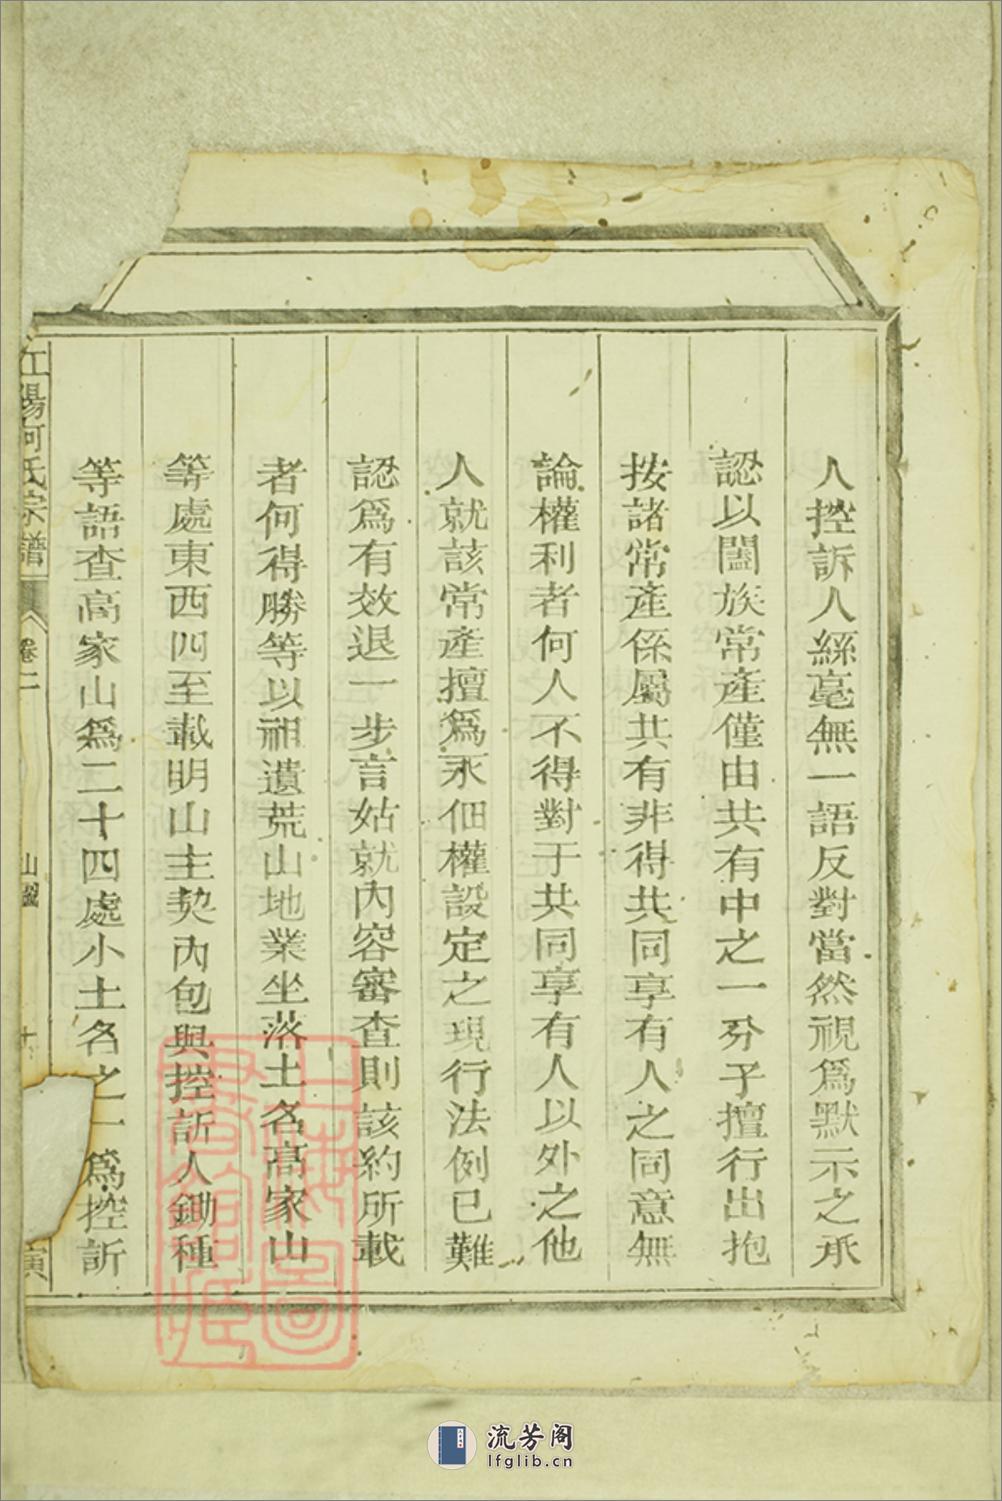 人控訴人絲毫無一語反對當然視爲默示之承
認以闔族常產僅由共有中之一分子擅行出抱
按諸常產係屬共有非得共同享有人之同意無
論權利者何人不得對于共同享有人以外之他
人就該常產擅爲永佃權設定之現行法例已難
認爲有效退一步言姑就內容審查則該約所載
者何得勝等以祖遺荒山地業坐落土名高家山
等處東西四至載明山主契內包與控訴人鋤種
等語查高家山爲二十四處小土名之一爲控訴
江陽何氏宗譜
卷二
山
十
上海圖書館藏
流芳阁
lfglib.cn